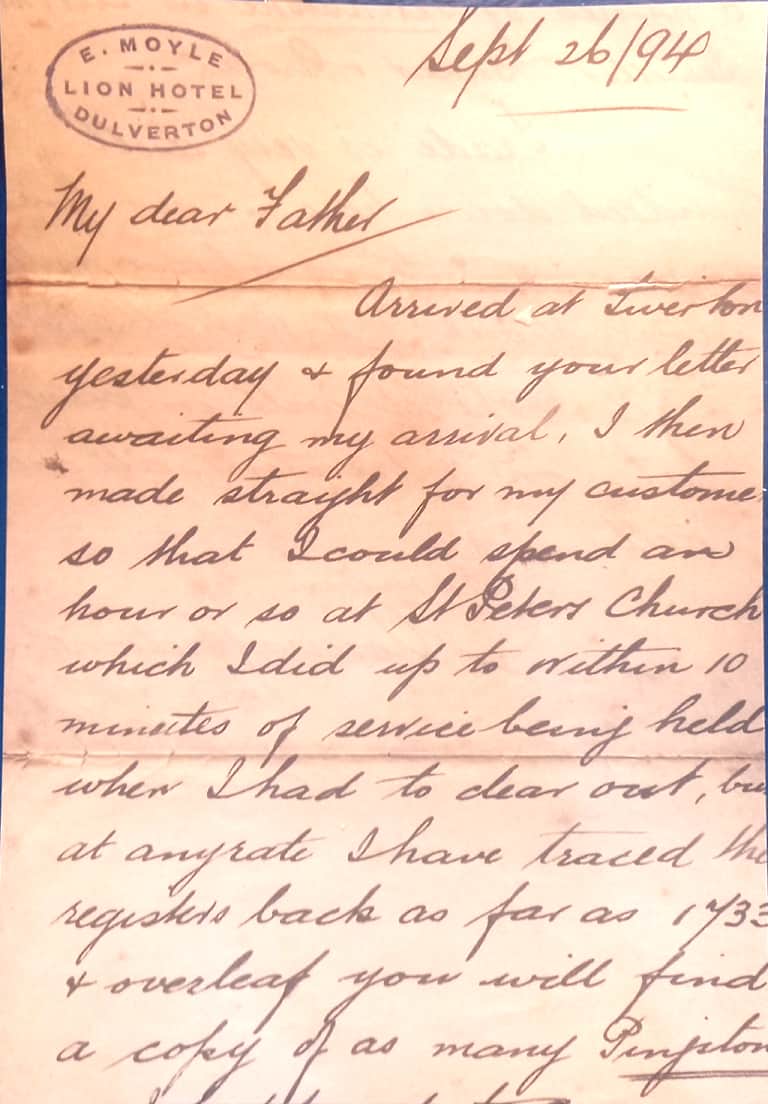 E. MOYLE
LION HOTEL
DULVERTON
Sept 26/94
My dear Father
Arrived at Tiverton
yesterday & found your letter
awaiting my arrival, I then
made straight for my custome
so that I could spend an
hour or so at St Peters Church
which I did up to within 10
minutes of service being held
when I had to clear out, bu
at anyrate I have traced the
registers back as far as 1733
& overleaf you will find
a copy of as many